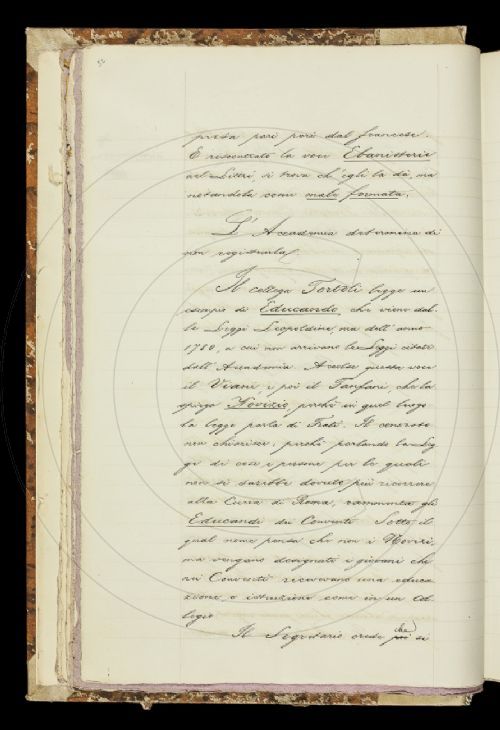 presa pari pari dal francese.
E riscontrata la voce Ebanisteria
nel Littré, si trova ch'egli la dà, ma
notandola come male formata.
L'Accademia determina di
non registrarla.
Il collega Tortoli legge un
esempio di Educando, che viene dal-
le Leggi Leopoldine, ma dell'anno
1788, a cui non arrivano le Leggi citate
dall'Accademia. Accolse questa voce
il Viani e poi il Fanfani, che la
spiega Novizio, perchè in quel luogo
la legge parla di Frati. Il
chiarisce, perchè parlando la Leg
ge di cose e persone per le quali
non si sarebbe dovuto più ricorrere
alla Curia di Roma, rammenta gli
Educandi dei Conventi. Sotto il
qual nome pensa che non i Novizi,
ma vengano designati i giovani che
nei Conventi ricevevano una educa
zione, o istruzione come in un Col
legio
Il Segretario crede che si